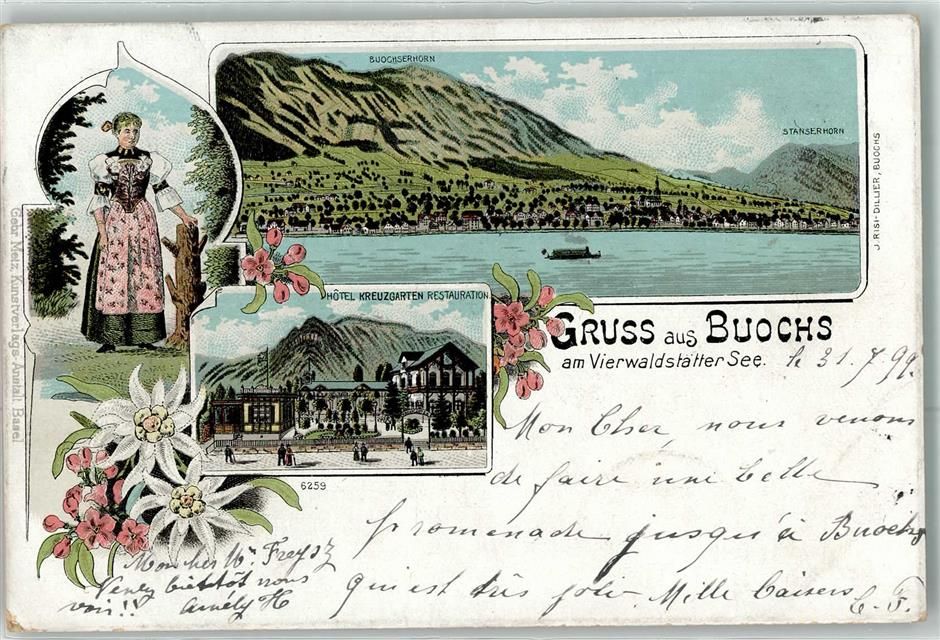 BUOCHSERHORN
STANSERHORN
J. RISI-DILLIER, BUOCHS
Gebr. Metz, Kunstverlags-Anstalt, Basel
HÔTEL KREUZGARTEN RESTAURATION
GRUSS aus BUOCHS
am Vierwaldstätter See.
6259
le 31.7.99.
Mon Cher, nous venons
de faire une belle
promenade jusqu'à Buochs
qui est très joli. Mille baisers
E. F.
Mon cher Mr. Frey
Venez bientôt nous
voir!! Amély H